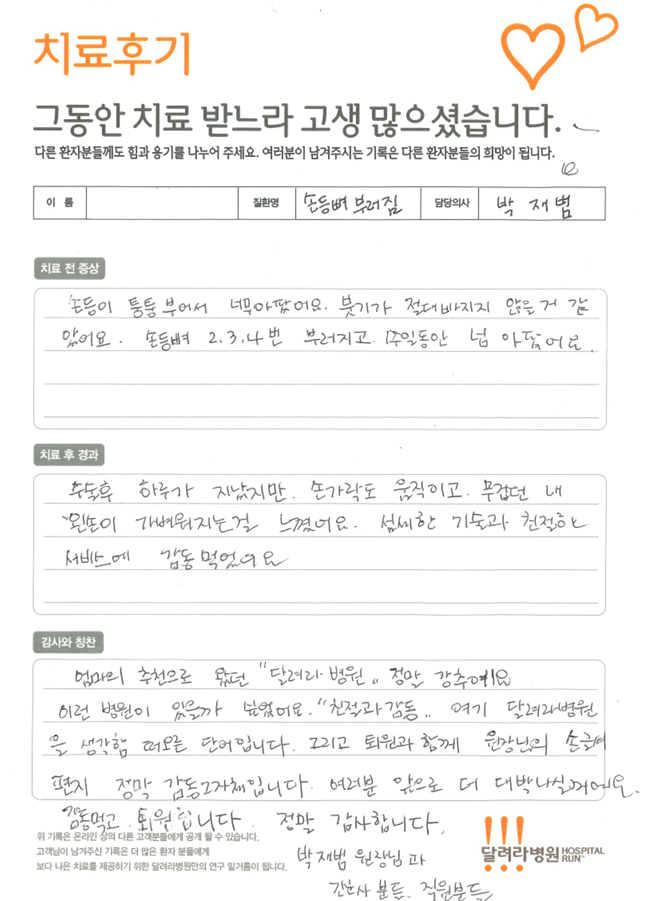 치료후기
그동안 치료 받느라 고생 많으셨습니다.
다른 환자분들께도 힘과 용기를 나누어 주세요. 여러분이 남겨주시는 기록은 다른 환자분들의 희망이 됩니다.
이 름 질환명 손등뼈 부러짐 담당의사 박 재 범
치료 전 증상
손등이 퉁퉁 부어서 너무아팠어요. 붓기가 절대바지지 않을거 같
았어요. 손등뼈 2.3.4번 부러지고. 1주일동안 넘 아팠어요.
치료 후 경과
수술후 하루가 지났지만. 손가락도 움직이고. 무겁던 내
왼손이 가벼워지는걸 느꼈어요. 섬세한 기술과 친절한
서비스에 감동먹었어요
감사와 칭찬
엄마의 추천으로 왔던 "달려라 병원" 정말 강추예요
이런 병원이 있을까 싶었어요. "친절과감동" 여기 달려라병원
을 생각함 떠오른 단어입니다. 그리고 퇴원과 함께 원장님의 손글씨
편지 정말 감동그자체입니다. 여러분 앞으로 더 대박나실꺼에요.
감동먹고 퇴원합니다. 정말 감사합니다.
위 기록은 온라인 상의 다른 고객분들에게 공개 될 수 있습니다.
고객님이 남겨주신 기록은 더 많은 환자 분들에게
보다 나은 치료를 제공하기 위한 달려라병원만의 연구 밑거름이 됩니다.
박재범 원장님과
간호사 분들. 직원분들
달려라병원 HOSPITAL RUN™